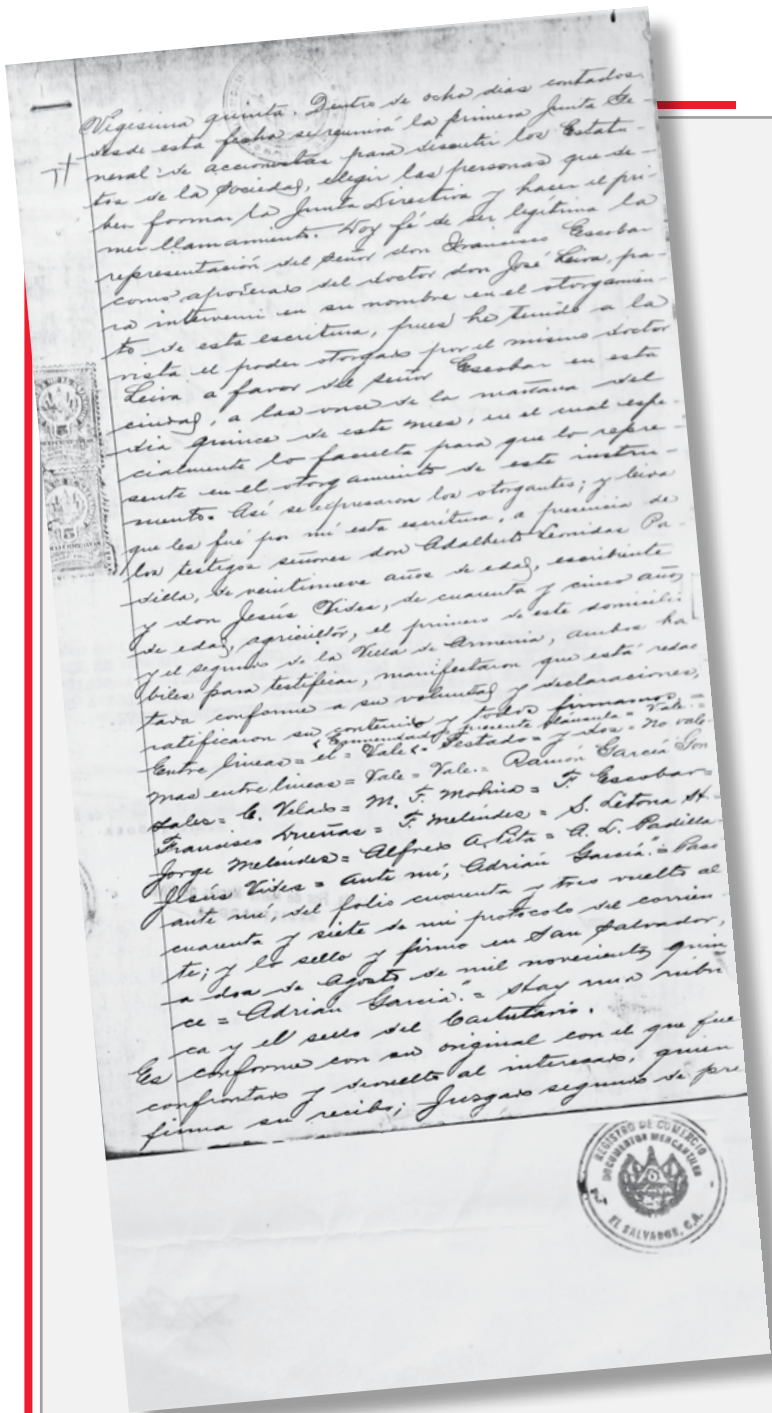 Vigésima quinta. Dentro de ocho dias contados
desde esta fecha se reunirá la primera Junta Ge-
neral de accionistas para discutir los Estatu-
tos de la Sociedad, elegir las personas que de-
ben formar la Junta Directiva y hacer el pri-
mer llamamiento. Doy fé de ser legítima la
representación del señor don Francisco Escobar
como apoderado del doctor don José Leiva, pa-
ra intervenir en su nombre en el otorgamien-
to de esta escritura, pues he tenido a la
vista el poder otorgado por el mismo doctor
Leiva a favor del señor Escobar en esta
ciudad, a las once de la mañana del
dia quince de este mes, en el cual espe-
cialmente lo faculta para que lo repre-
sente en el otorgamiento de este instru-
mento. Así se expresaron los otorgantes; y leida
que les fué por mí esta escritura, a presencia de
los testigos señores don Adalberto Leonidas Pa-
dilla, de veintinueve años de edad, escribiente
y don Jesús Vides, de cuarenta y cinco años
de edad, agricultor, el primero de este domicilio
y el segundo de la Villa de Armenia, ambos ha
biles para testificar, manifestaron que está redac
tada conforme a su voluntad y declaraciones,
ratificaron su contenido y todos firmamos.=
Entre lineas = el = Vale = Enmendado = presente cláusula = Vale.=
Testado = y dos = No vale
mas entre lineas = Vale = Vale.= Ramón García Gon
zales = C. Velado = M. T. Molina = F. Escobar =
Francisco Dueñas = F. Meléndez = S. Letona H. =
Jorge Meléndez = Alfredo A. Pita = A. L. Padilla
Jesús Vides = Ante mí, Adrián García." = Pasó
ante mí, del folio cuarenta y tres vuelto al
cuarenta y siete de mi protocolo del corrien
te; y lo sello y firmo en San Salvador,
a dos de Agosto de mil novecientos quin
ce = Adrián García." = Hay una rúbri
ca y el sello del Cartulario.
Es conforme con su original con el que fué
confrontado y devuelto al interesado, quien
firma su recibo; Juzgado segundo de pre
REGISTRO DE COMERCIO
DOCUMENTOS MERCANTILES
EL SALVADOR, C.A.